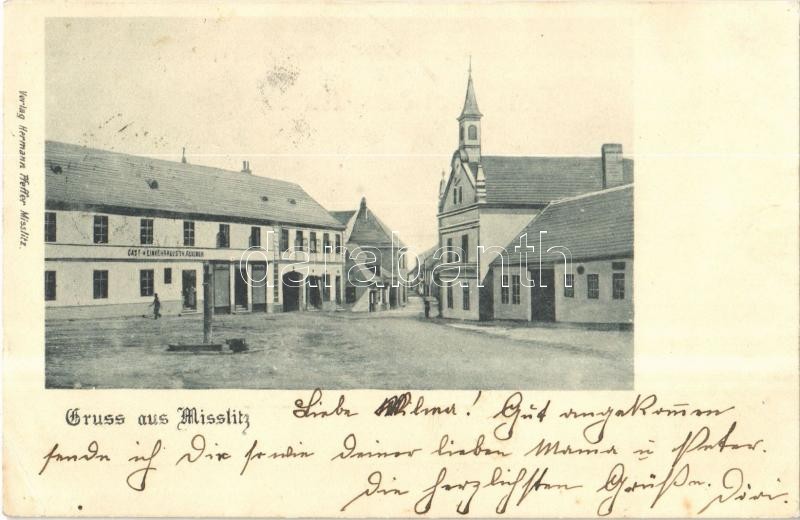 Verlag Hermann Pfeffer Misslitz.
GAST- u. EINKEHRHAUS
darabanth
Gruss aus Misslitz
Liebe Wilma! Gut angekom̄en
sende ich Dir sowie deiner lieben Mama u Vater.
die herzlichsten Grüße. Dori.